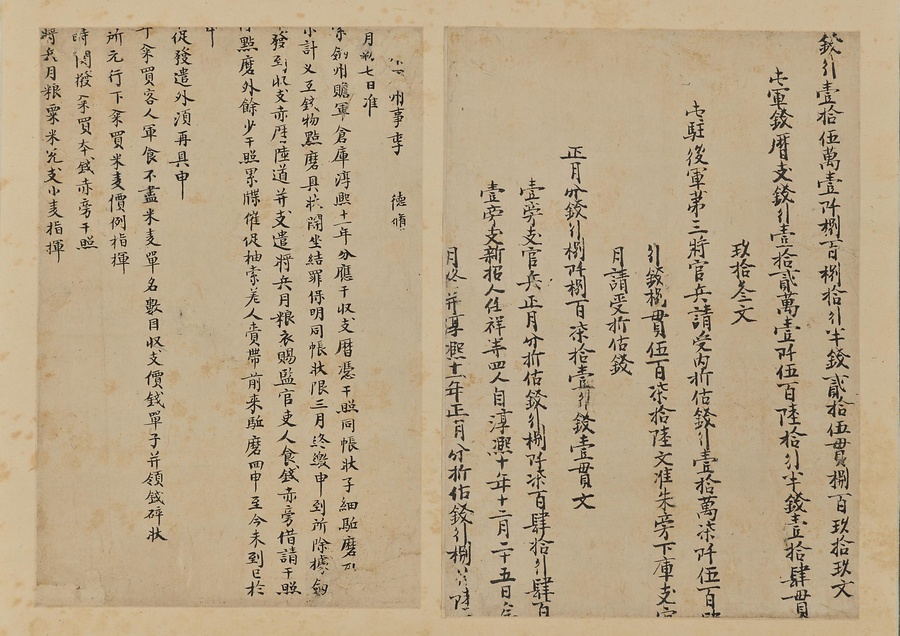 錢引壹拾伍萬壹阡捌百捌拾引半錢貳拾伍貫捌百玖拾玖文
屯軍錢曆支錢引壹拾貳萬壹阡伍百陸拾引半錢壹拾肆貫
玖拾叁文
屯駐後軍第三將官兵請受內折估錢引壹拾萬柒阡伍百
引錢捌貫伍百柒拾陸文准朱旁下庫支
月請受折估錢
正月分錢引捌阡捌百柒拾壹引錢壹貫文
壹旁支官兵正月分折估錢引捌阡柒百肆拾引肆百
壹旁支新招人任祥等四人自淳熙十年十二月二十五日
月終并淳熙十一年正月分折估錢引捌
州事李 德
月 七日准
劍州贍軍倉庫淳熙十一年分應干收支曆憑干照同帳狀子細驅磨
計义互錢物點磨具狀開坐結罪保明同帳狀限三月終繳申到所除據劍
發到收支赤曆陸道并支遣將兵月粮衣賜監官吏人食錢赤旁借請干照
點磨外餘少干照累牒催促抽索差人賫帶前來驅磨四申至今未到已於
申
促發遣外須再具申
糴買客人軍食不盡米麦單名數目收支價錢單子并領錢碎狀
所元行下糴買米麦價例指揮
時間撥糴買本錢赤旁干照
將兵月粮粟米充支小麦指揮